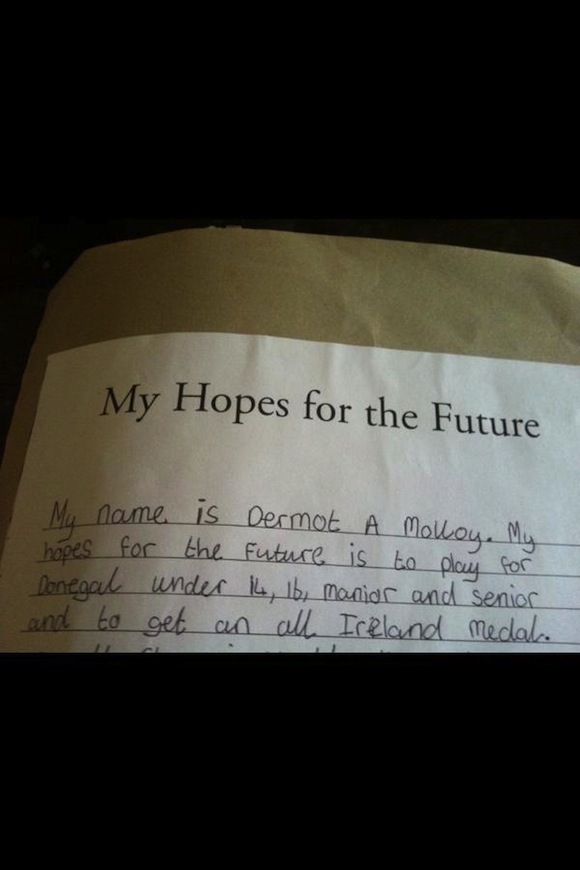 My Hopes for the Future
My name is Dermot A Molloy. My
hopes for the future is to play for
Donegal under 14, 16, manior and senior
and to get an all Ireland medal.